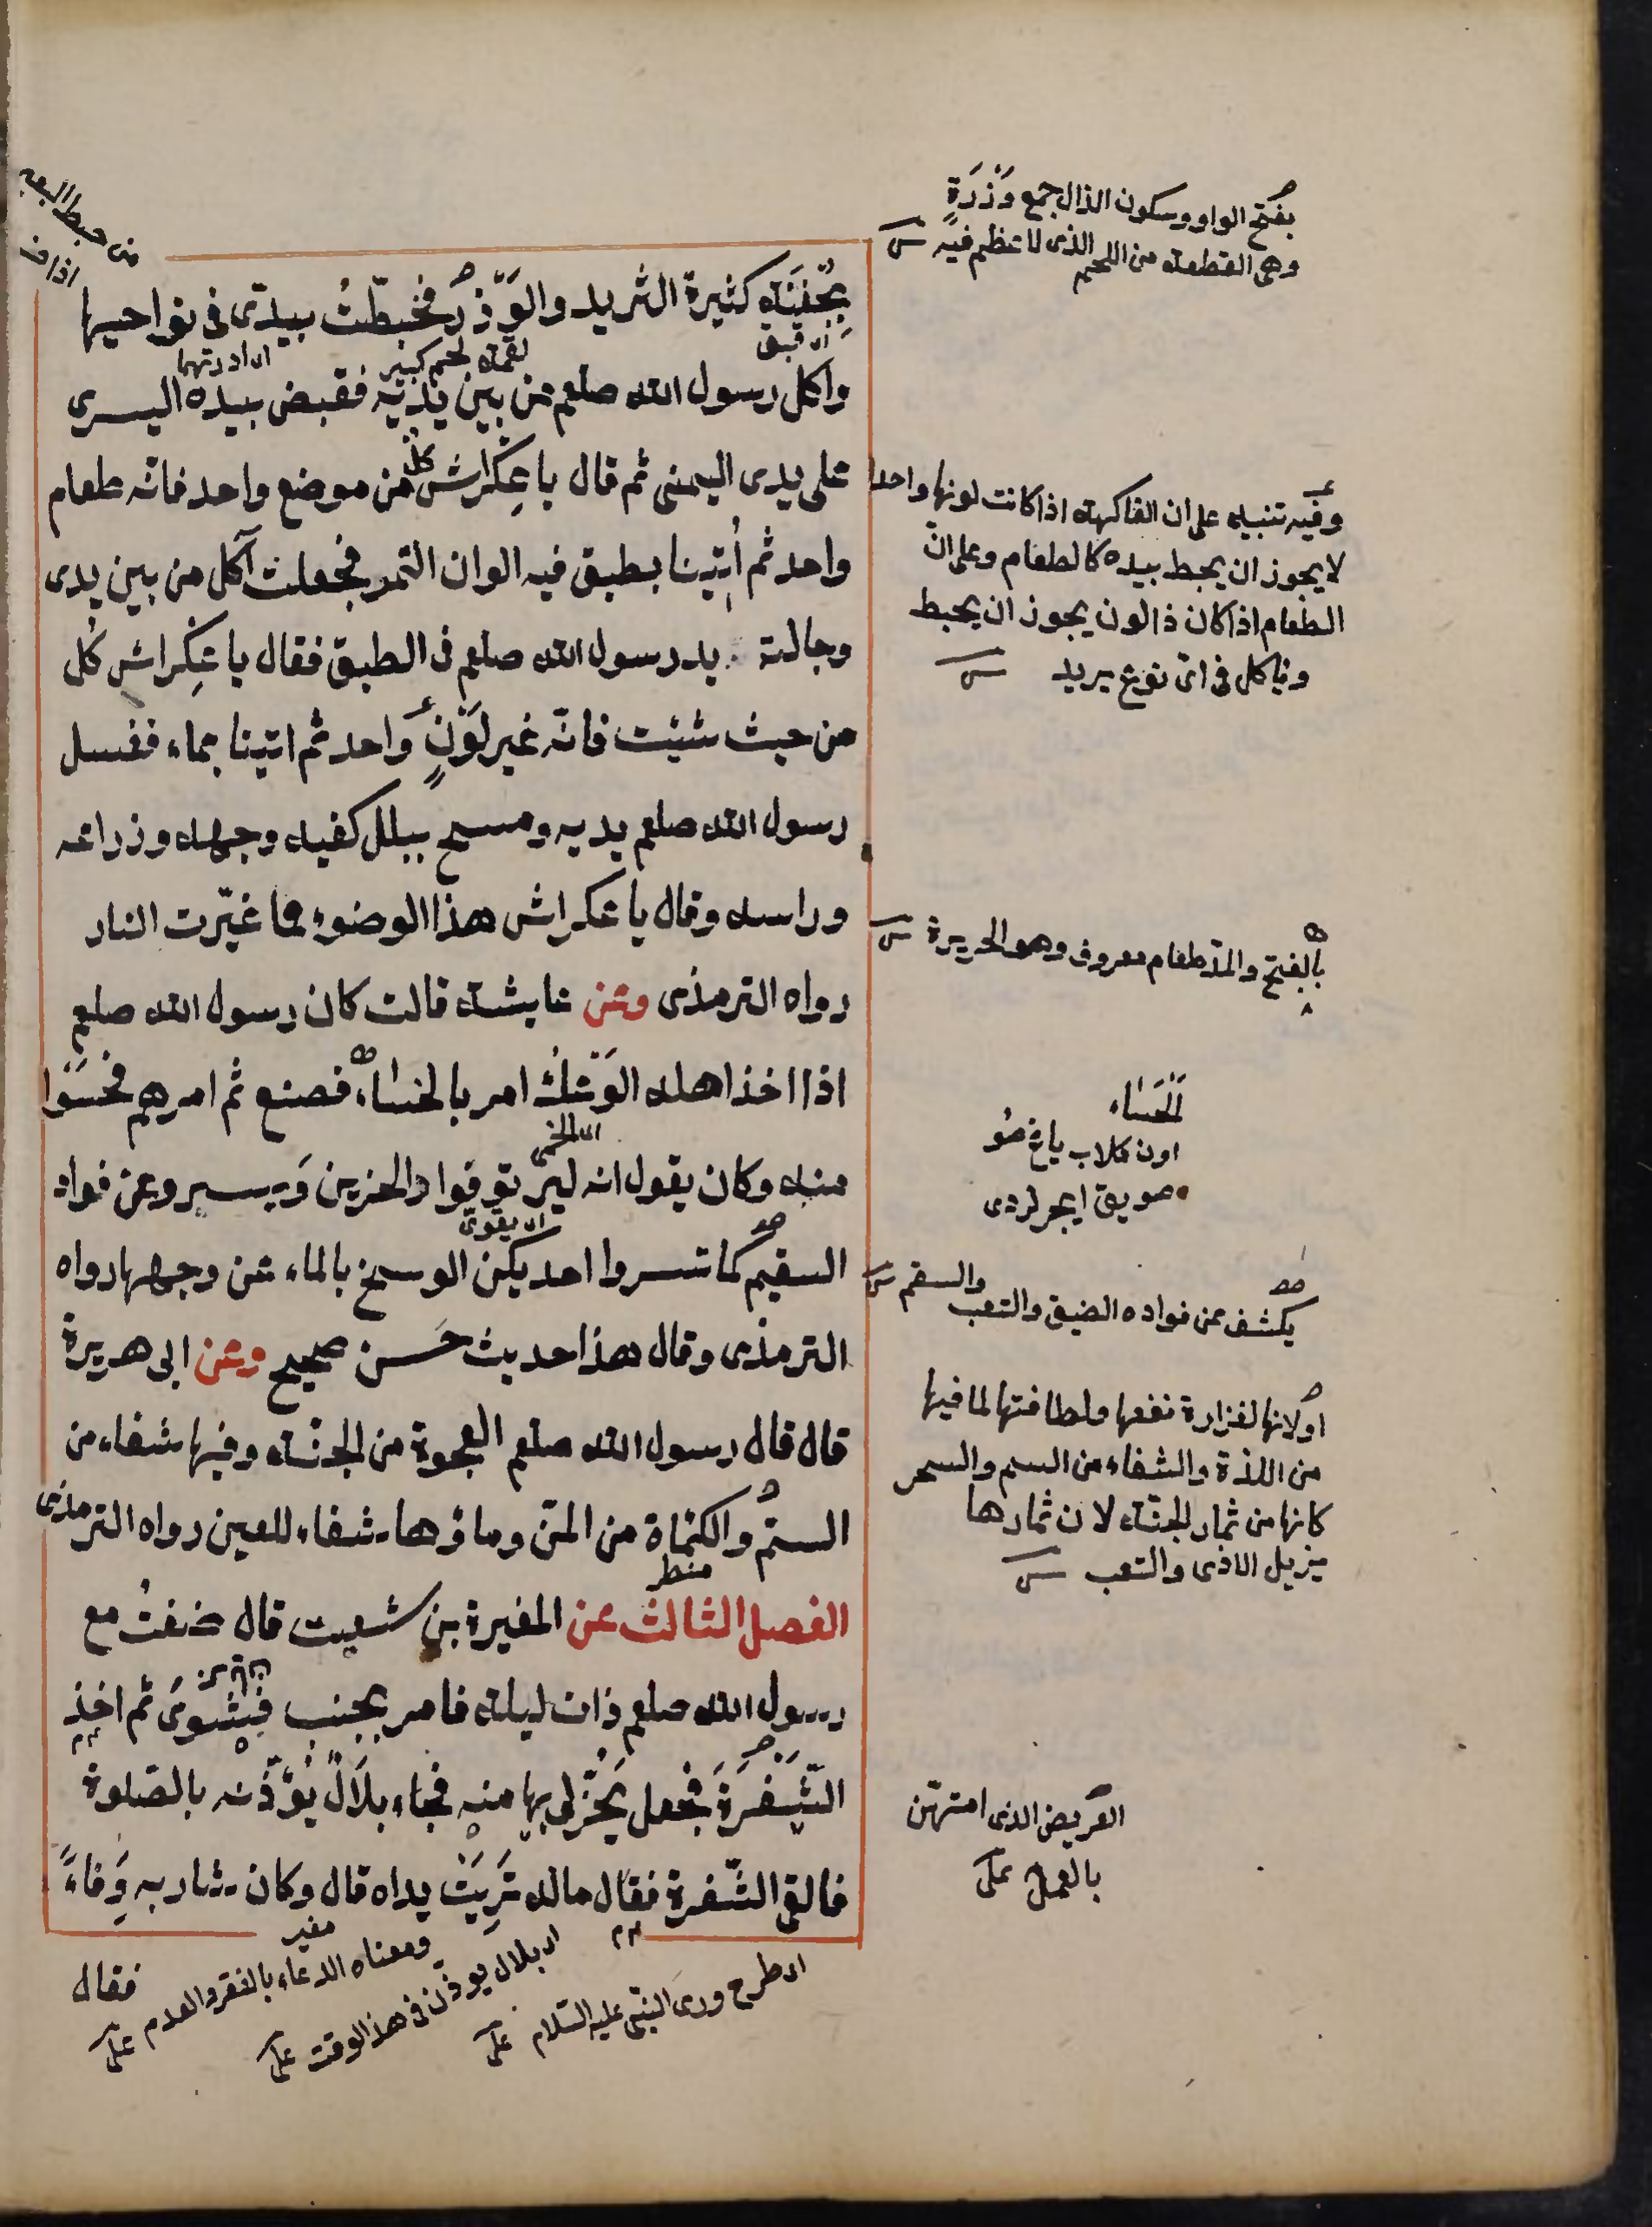 بجفنة كثيرة الثريد والوذر فخبطت بيدى فى نواحيها
واكل رسول الله صلعم من بين يديه فقبض بيده اليسرى
على يدى اليمنى ثم قال يا عكراش كل من موضع واحد فانه طعام
واحد ثم اُتينا بطبق فيه الوان التمر فجعلت آكل من بين يدى
وجالت يد رسول الله صلعم فى الطبق فقال يا عكراش كُل
من حيث شئت فانّه غير لونٍ واحد ثم اتينا بماء ففسل
رسول الله صلعم يديه ومسح ببلل كفيه وجهه وذراعه
وراسه وقال يا عكراش هذا الوضوء مما غيّرت النار
رواه الترمذى وعن عايشة قالت كان رسول الله صلعم
اذا اخذ اهله الوَعْكُ امر بالحساء فصنع ثم امرهم فحسَوْا
منه وكان يقول انه ليرتو فواد الحزين ويسرو عن فواد
السقيم كما تسروا احديكن الوسخ بالماء عن وجهها رواه
الترمذى وقال هذا حديث حسن صحيح وعن ابى هريرة
قال قال رسول الله صلعم العجوة من الجنّة وفيها شفاء من
السمّ والكماة من المنّ وماؤها شفاء للعين رواه الترمذى
الفصل الثالث عن المغيرة بن شعبت قال ضفتُ مع
رسول الله صلعم ذات ليلة فامر بجنب فشوىَ ثم اخذ
الشَّفْرَةَ فجعل يَحُزُّ لى بها منه فجاء بلالٌ يؤذنه بالصّلوة
فالقى الشّفرة فقال ماله تَرِبَتْ يداه قال وكان شاربه وَفاءً
فقال
بفتح الواو وسكون الذال جمع وَذْرَةٍ
وهى القطعة من اللحم الذى لا عظم فيه
وفيه تنبيه على ان الفاكهة اذا كانت لونها واحدا
لا يجوز ان يخبط بيده كالطعام وعلى انّ
الطعام اذا كان ذا لون يجوز ان يخبط
وياكل فى اىّ نوع يريد
بالفتح والمدّ طعام معروف وهو الحريرة
اَلْحَسَاء
اون كلاب ياغ صو
يكشف عن فواده الضيق والتعب والسقم
اولانها لغزارة نفعها ولطافتها لما فيها
من اللذة والشفاء من السم والسحر
كانها من ثمار الجنّة لان ثمارها
يزيل الاذى والتعب
العريض الذى امتهن
بالعمل على
من خبط البعير
لقمة لحم كبير
اى ادرتهما
اى الحمى
اى يقوى
اى طرح ورمى النبى عليه السلام على
اى بلال يوذن فى هذا الوقت على
ومعناه الدعاء بالفقر والعدم على